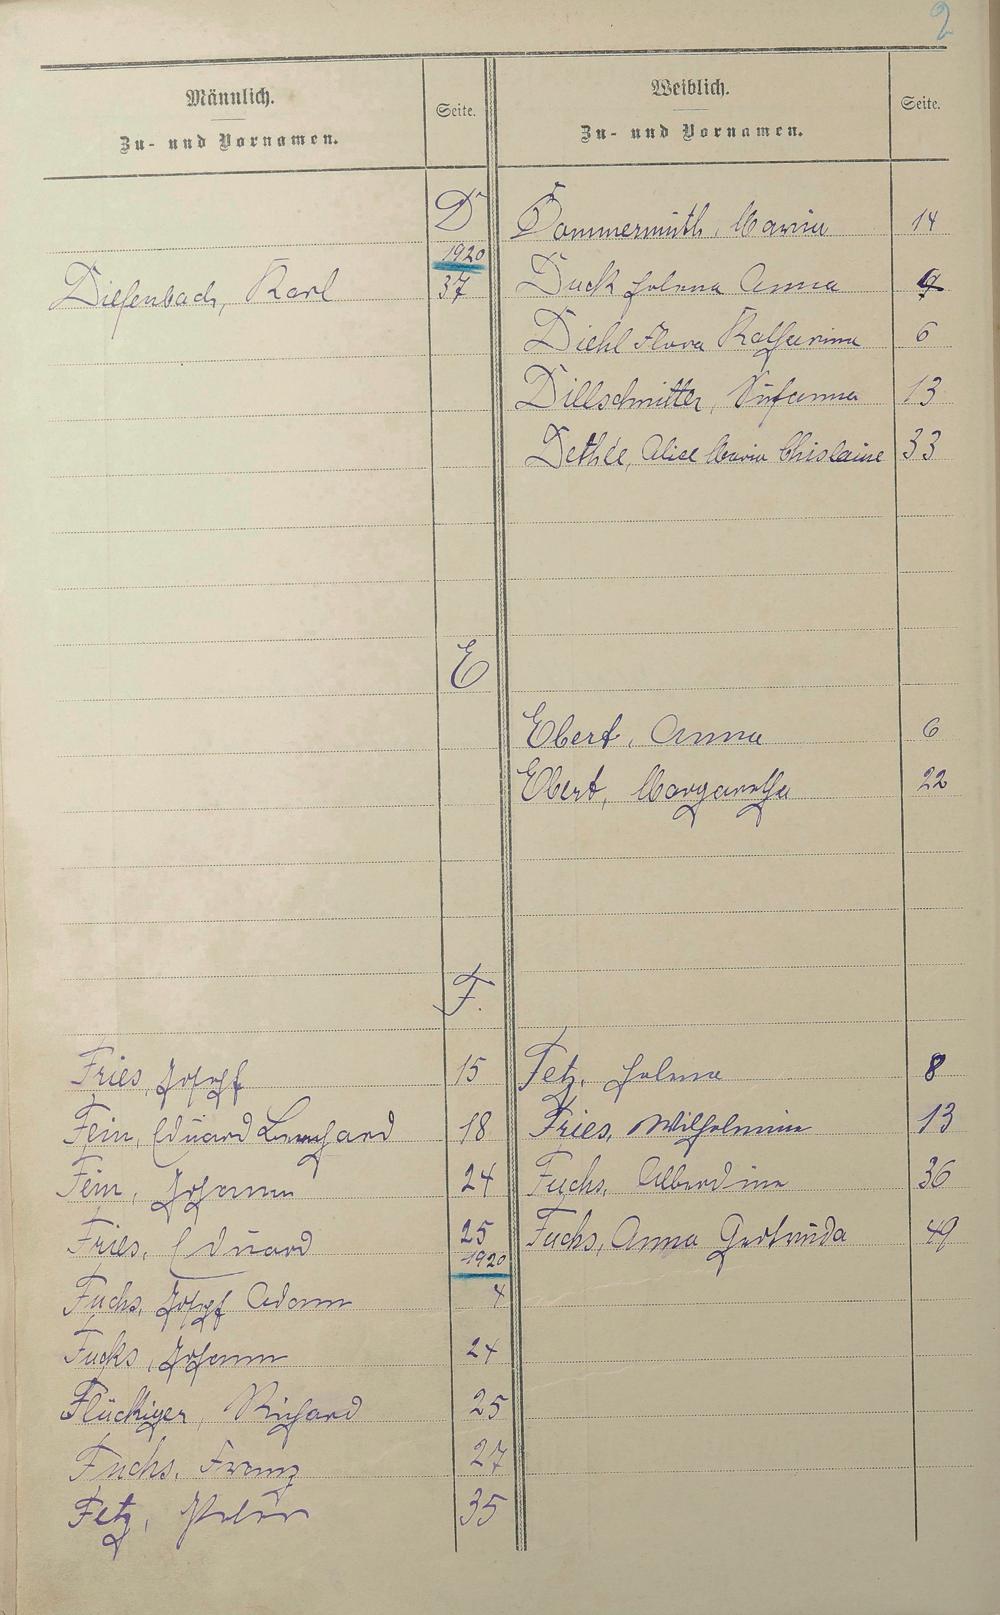 2
Männlich.
Zu- und Vornamen.
Seite.
Weiblich.
Zu- und Vornamen.
Seite.
D
Dommermuth, Maria 14
1920
Diefenbach, Karl 37
Duck Helena Anna 9
Diehl Flora Katharina 6
Dillschnitter, Susanna 13
Dethée, Alice Maria Ghislaine 33
E
Ebert, Anna 6
Ebert, Margaretha 22
F.
Fries, Josef 15
Fetz, Helena 8
Fein, Eduard Bernhard 18
Fries, Wilhelmine 13
Fein, Johann 24
Fuchs, Alberdine 36
Fries, Eduard 25
Fuchs, Anna Gertruda 49
1920
Fuchs, Josef Adam 4
Fuchs, Johann 24
Flückiger, Richard 25
Fuchs, Franz 27
Fetz, Peter 35